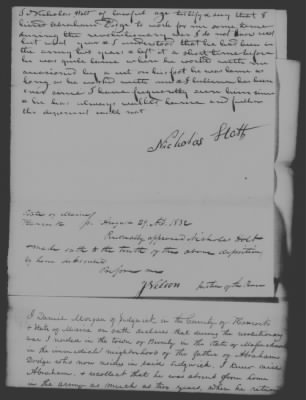 I Nicholas Holt of lawful age testify & say that I
hired Abraham Dodge to work for me some time
during the revolutionary war I do not know now
but what year & I understood that he had been in
the army 2 years & left it a short time before
he was quite lame when he worked with me
occasioned by a cut on his foot he was lame as
long as he worked with me & I believe has been
ever since I have frequently seen him since
& he has always walked lame and further
this deponent saith not
Nicholas Holt
State of Maine
Hancock ss. August 29. A.D. 1832
Personally appeared Nichols Holt
& made oath to the truth of the above deposition
by him subscribed
Before me
J Wilson Justice of the Peace
I Daniel Morgan of Sedgwick in the County of Hancock
& State of Maine on oath declare that during the revolutionary
war I resided in the town of Beverly in the State of Massachusetts
in the immediate neighborhood of the father of Abraham
Dodge who now resides in said Sedgwick, I knew said
Abraham, & recollect that he was absent from home
in the army as much as two years, when he return